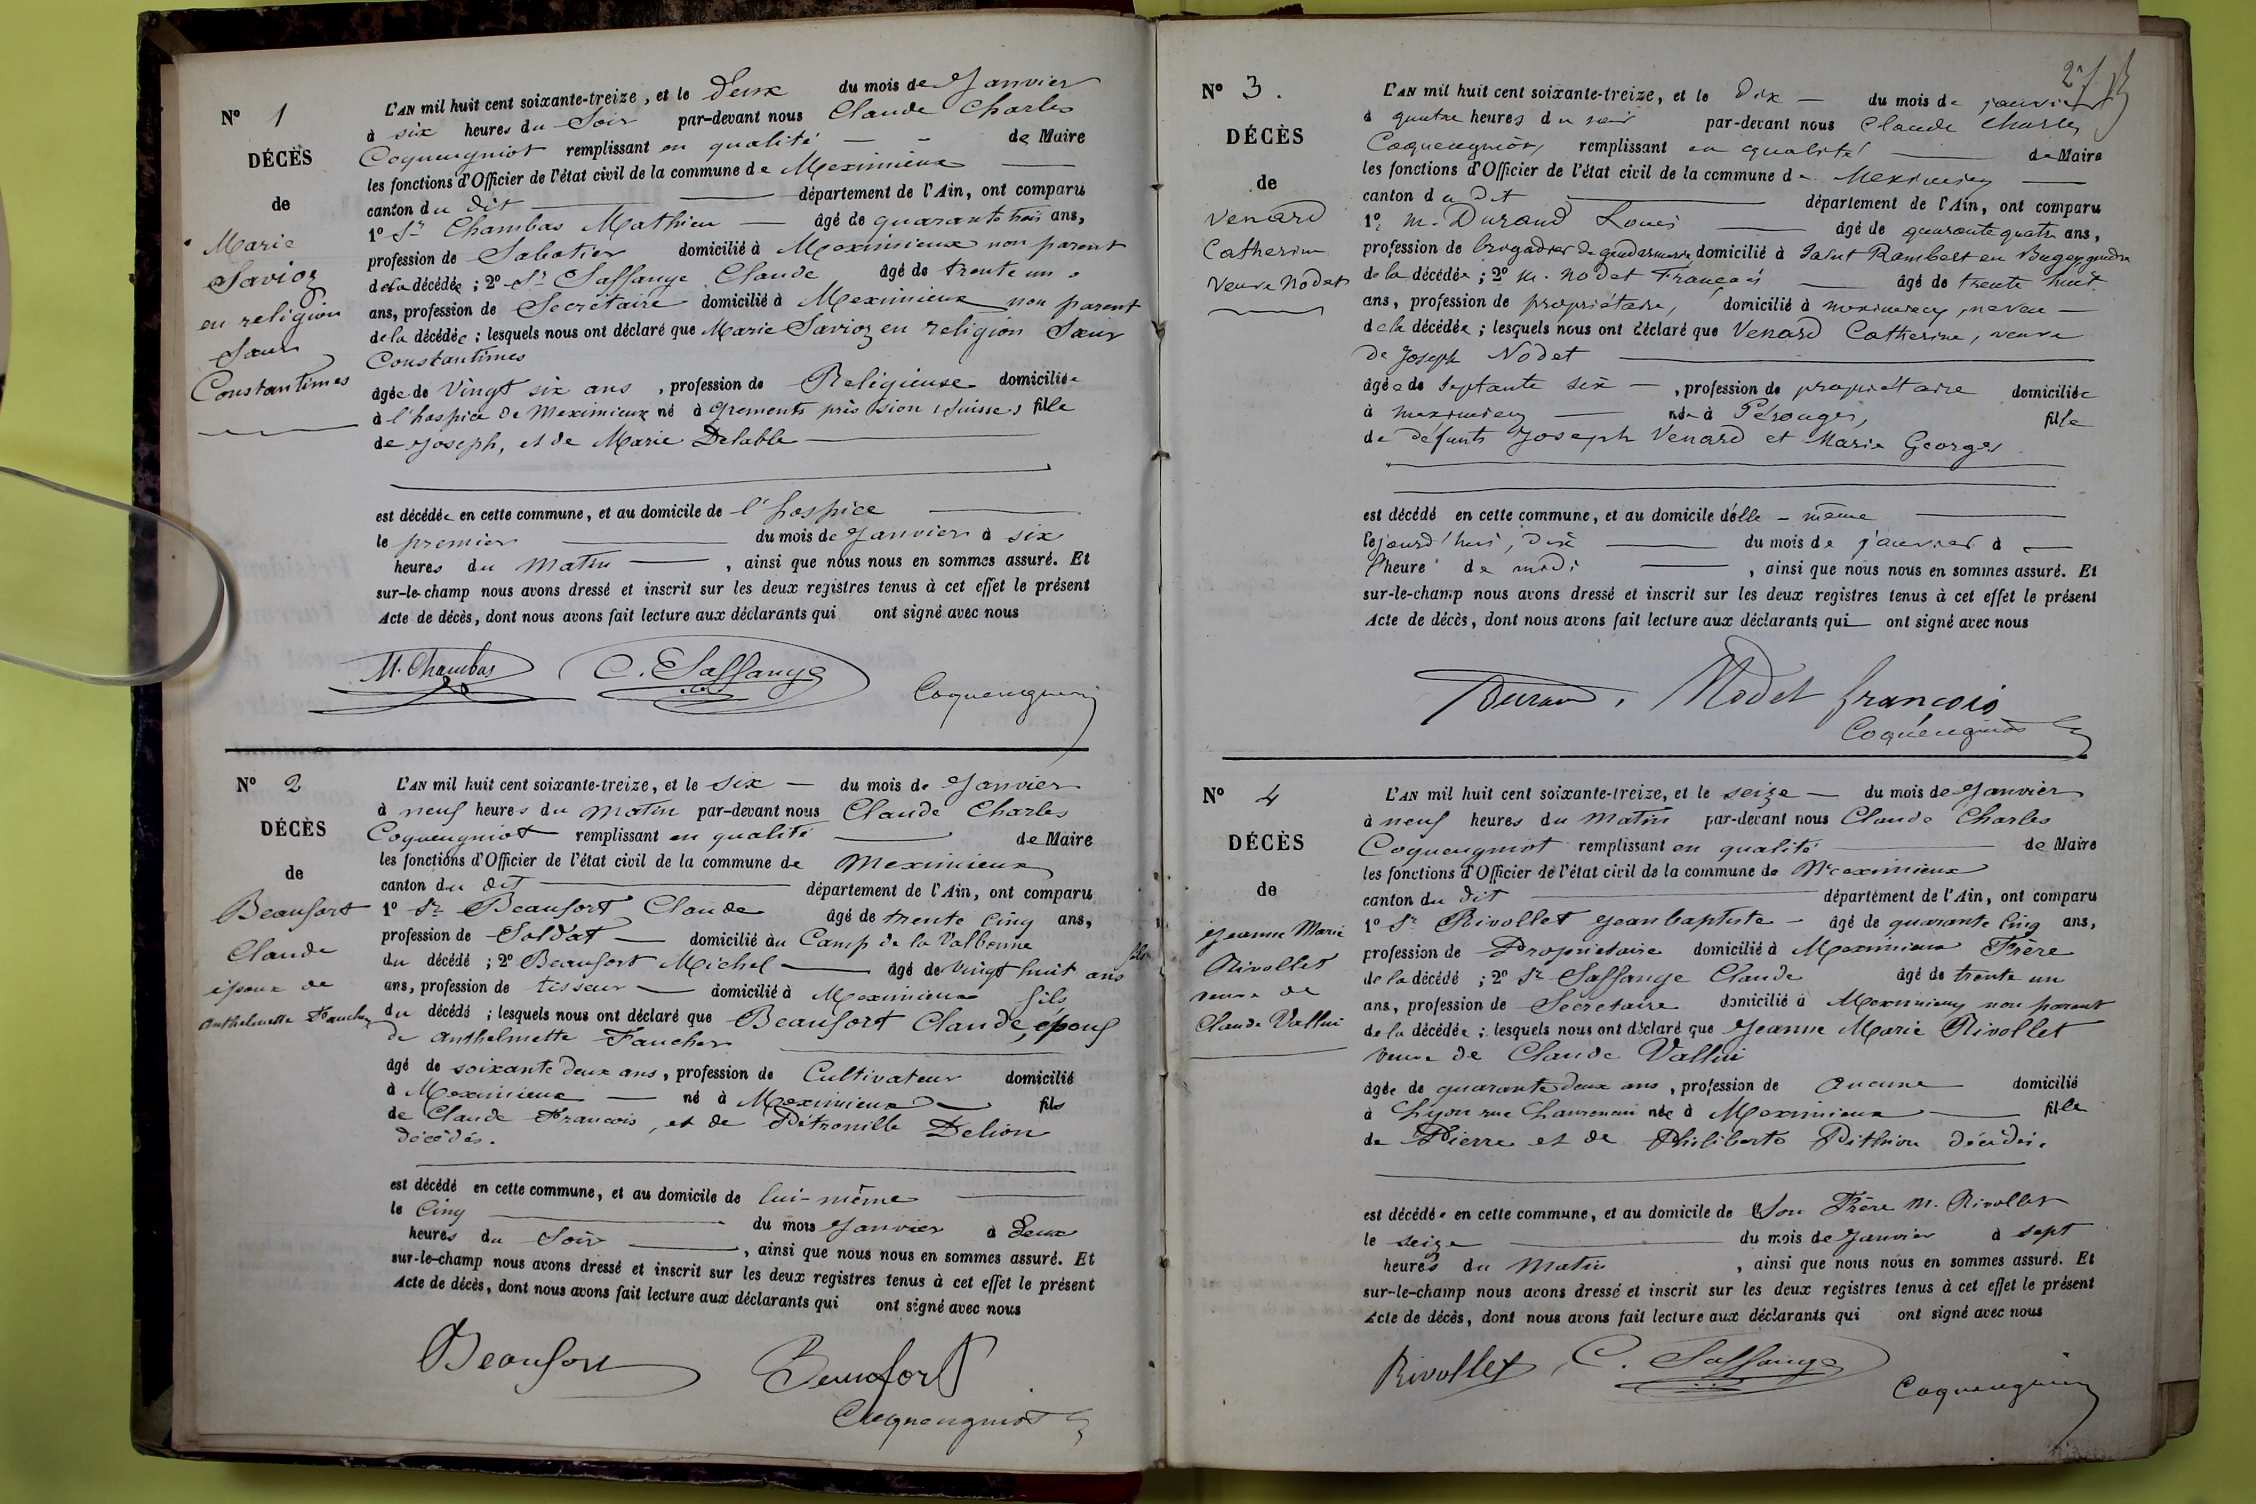 N° 1
DÉCÈS
de
Marie
Savioz
en religion
Sœur
Constantimes
L'AN mil huit cent soixante-treize, et le Deux du mois de Janvier
à six heures du Soir par-devant nous Claude Charles
Coqueugniot remplissant en qualité de Maire
les fonctions d'Officier de l'état civil de la commune de Meximieux
canton du dit département de l'Ain, ont comparu
1° Sr Chambas Mathieu âgé de quarante trois ans,
profession de Sabotier domicilié à Meximieux non parent
de la décédée ; 2° Sr Saffange Claude âgé de trente un
ans, profession de Secrétaire domicilié à Meximieux non parent
de la décédée ; lesquels nous ont déclaré que Marie Savioz en religion Sœur
Constantimes
âgée de Vingt six ans, profession de Religieuse domiciliée
à l'hospice de Meximieux né à Grements près Sion (Suisse) fille
de Joseph, et de Marie Delable
est décédée en cette commune, et au domicile de l'hospice
le premier du mois de Janvier à six
heures du Matin, ainsi que nous nous en sommes assuré. Et
sur-le-champ nous avons dressé et inscrit sur les deux registres tenus à cet effet le présent
Acte de décès, dont nous avons fait lecture aux déclarants qui ont signé avec nous
M. Chambas C. Saffange
Coqueugniot
N° 2
DÉCÈS
de
Beaufort
Claude
époux de
Anthelmette Faucher
L'AN mil huit cent soixante-treize, et le six du mois de Janvier
à neuf heures du matin par-devant nous Claude Charles
Coqueugniot remplissant en qualité de Maire
les fonctions d'Officier de l'état civil de la commune de Meximieux
canton du dit département de l'Ain, ont comparu
1° Sr Beaufort Claude âgé de trente cinq ans,
profession de Soldat domicilié au Camp de la Valbonne fils
du décédé ; 2° Beaufort Michel âgé de vingt huit ans
ans, profession de tisseur domicilié à Meximieux fils
du décédé ; lesquels nous ont déclaré que Beaufort Claude, époux
de Anthelmette Faucher
âgé de soixante deux ans, profession de Cultivateur domicilié
à Meximieux né à Meximieux fils
de Claude François, et de Pétronille Delion
décédés.
est décédé en cette commune, et au domicile de lui-même
le Cinq du mois Janvier à Deux
heures du Soir, ainsi que nous nous en sommes assuré. Et
sur-le-champ nous avons dressé et inscrit sur les deux registres tenus à cet effet le présent
Acte de décès, dont nous avons fait lecture aux déclarants qui ont signé avec nous
Beaufort Beaufort
Coqueugniot
N° 3.
DÉCÈS
de
Venard
Catherine
Veuve Nodet
L'AN mil huit cent soixante-treize, et le Dix du mois de janvier
à quatre heures du soir par-devant nous Claude Charles
Coqueugniot, remplissant en qualité de Maire
les fonctions d'Officier de l'état civil de la commune de Meximieux
canton du dit département de l'Ain, ont comparu
1° M. Durand Louis âgé de quarante quatre ans,
profession de brigadier de gendarmerie domicilié à Saint Rambert en Bugey gendre
de la décédée ; 2° M. Nodet François âgé de trente huit
ans, profession de propriétaire, domicilié à meximieux, neveu
de la décédée ; lesquels nous ont déclaré que Venard Catherine, veuve
de Joseph Nodet
âgée de septante six, profession de propriétaire domiciliée
à meximieux née à Pérouges, fille
de défunts Joseph Venard et Marie Georges
est décédé en cette commune, et au domicile d'elle-même
le jourd'hui, dix du mois de janvier à
l'heure de midi, ainsi que nous nous en sommes assuré. Et
sur-le-champ nous avons dressé et inscrit sur les deux registres tenus à cet effet le présent
Acte de décès, dont nous avons fait lecture aux déclarants qui ont signé avec nous
Durand. Nodet françois
Coqueugniot
N° 4
DÉCÈS
de
Jeanne Marie
Rivollet
veuve de
Claude Vallin
L'AN mil huit cent soixante-treize, et le seize du mois de Janvier
à neuf heures du Matin par-devant nous Claude Charles
Coqueugniot remplissant en qualité de Maire
les fonctions d'Officier de l'état civil de la commune de Meximieux
canton du dit département de l'Ain, ont comparu
1° Sr Rivollet Jean baptiste âgé de quarante cinq ans,
profession de Propriétaire domicilié à Meximieux Frère
de la décédé ; 2° Sr Saffange Claude âgé de trente un
ans, profession de Secrétaire domicilié à Meximieux non parent
de la décédée ; lesquels nous ont déclaré que Jeanne Marie Rivollet
veuve de Claude Vallin
âgée de quarante deux ans, profession de aucune domicilié
à Lyon rue née à Meximieux fille
de Pierre et de Philiberte Pithion décédés.
est décédée en cette commune, et au domicile de Son Frère M. Rivollet
le seize du mois de Janvier à sept
heures du Matin, ainsi que nous nous en sommes assuré. Et
sur-le-champ nous avons dressé et inscrit sur les deux registres tenus à cet effet le présent
Acte de décès, dont nous avons fait lecture aux déclarants qui ont signé avec nous
Rivollet, C. Saffange
Coqueugniot